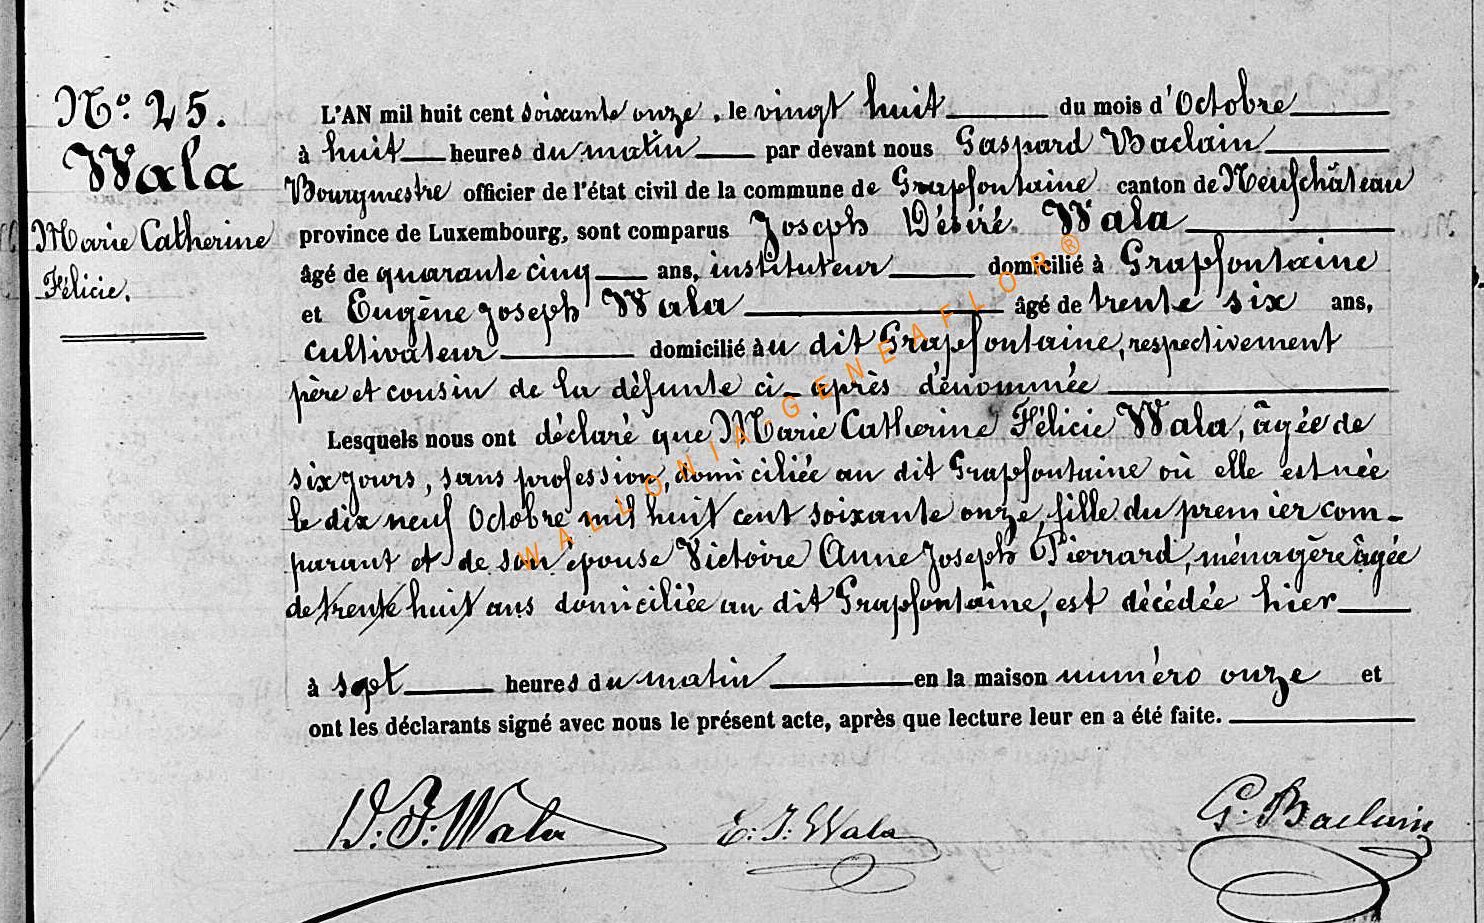 N° 25.
Wala
Marie Catherine
Félicie.
L'AN mil huit cent soixante onze, le vingt huit du mois d'Octobre
à huit heures du matin par devant nous Gaspard Baclain
Bourgmestre officier de l'état civil de la commune de Grapfontaine canton de Neufchâteau
province de Luxembourg, sont comparus Joseph Désiré Wala
âgé de quarante cinq ans, instituteur domicilié à Grapfontaine
et Eugène Joseph Wala âgé de trente six ans,
cultivateur domicilié au dit Grapfontaine, respectivement
père et cousin de la défunte ci-après dénommée
Lesquels nous ont déclaré que Marie Catherine Félicie Wala, âgée de
six jours, sans profession, domiciliée au dit Grapfontaine où elle est née
le dix neuf Octobre mil huit cent soixante onze, fille du premier com-
parant et de son épouse Victoire Anne Joseph Pierrard, ménagère âgée
de trente huit ans domiciliée au dit Grapfontaine, est décédée hier
à sept heures du matin en la maison numéro onze et
ont les déclarants signé avec nous le présent acte, après que lecture leur en a été faite.
D. J. Wala E. J. Wala G. Baclain
WALLONIA-GENEAFLOR®